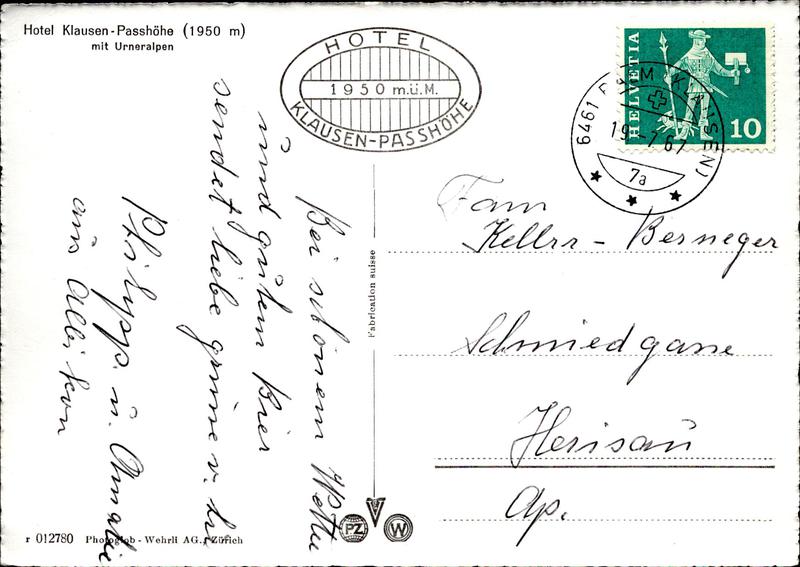 Hotel Klausen-Passhöhe (1950 m)
mit Urneralpen
HOTEL
1950 m.ü.M.
KLAUSEN-PASSHÖHE
HELVETIA
10
6461 KLAUSEN)
19.-7.67
7a
Bei schönem Wetter
und gutem Bier
sendet liebe grüsse v. hi
Philipp u. Amalie
aus Albikon
Fabrication suisse
Fam
Keller - Berneger
Schmiedgasse
Herisau
Ap.
PZ
W
r 012780 Photoglob - Wehrli AG., Zürich